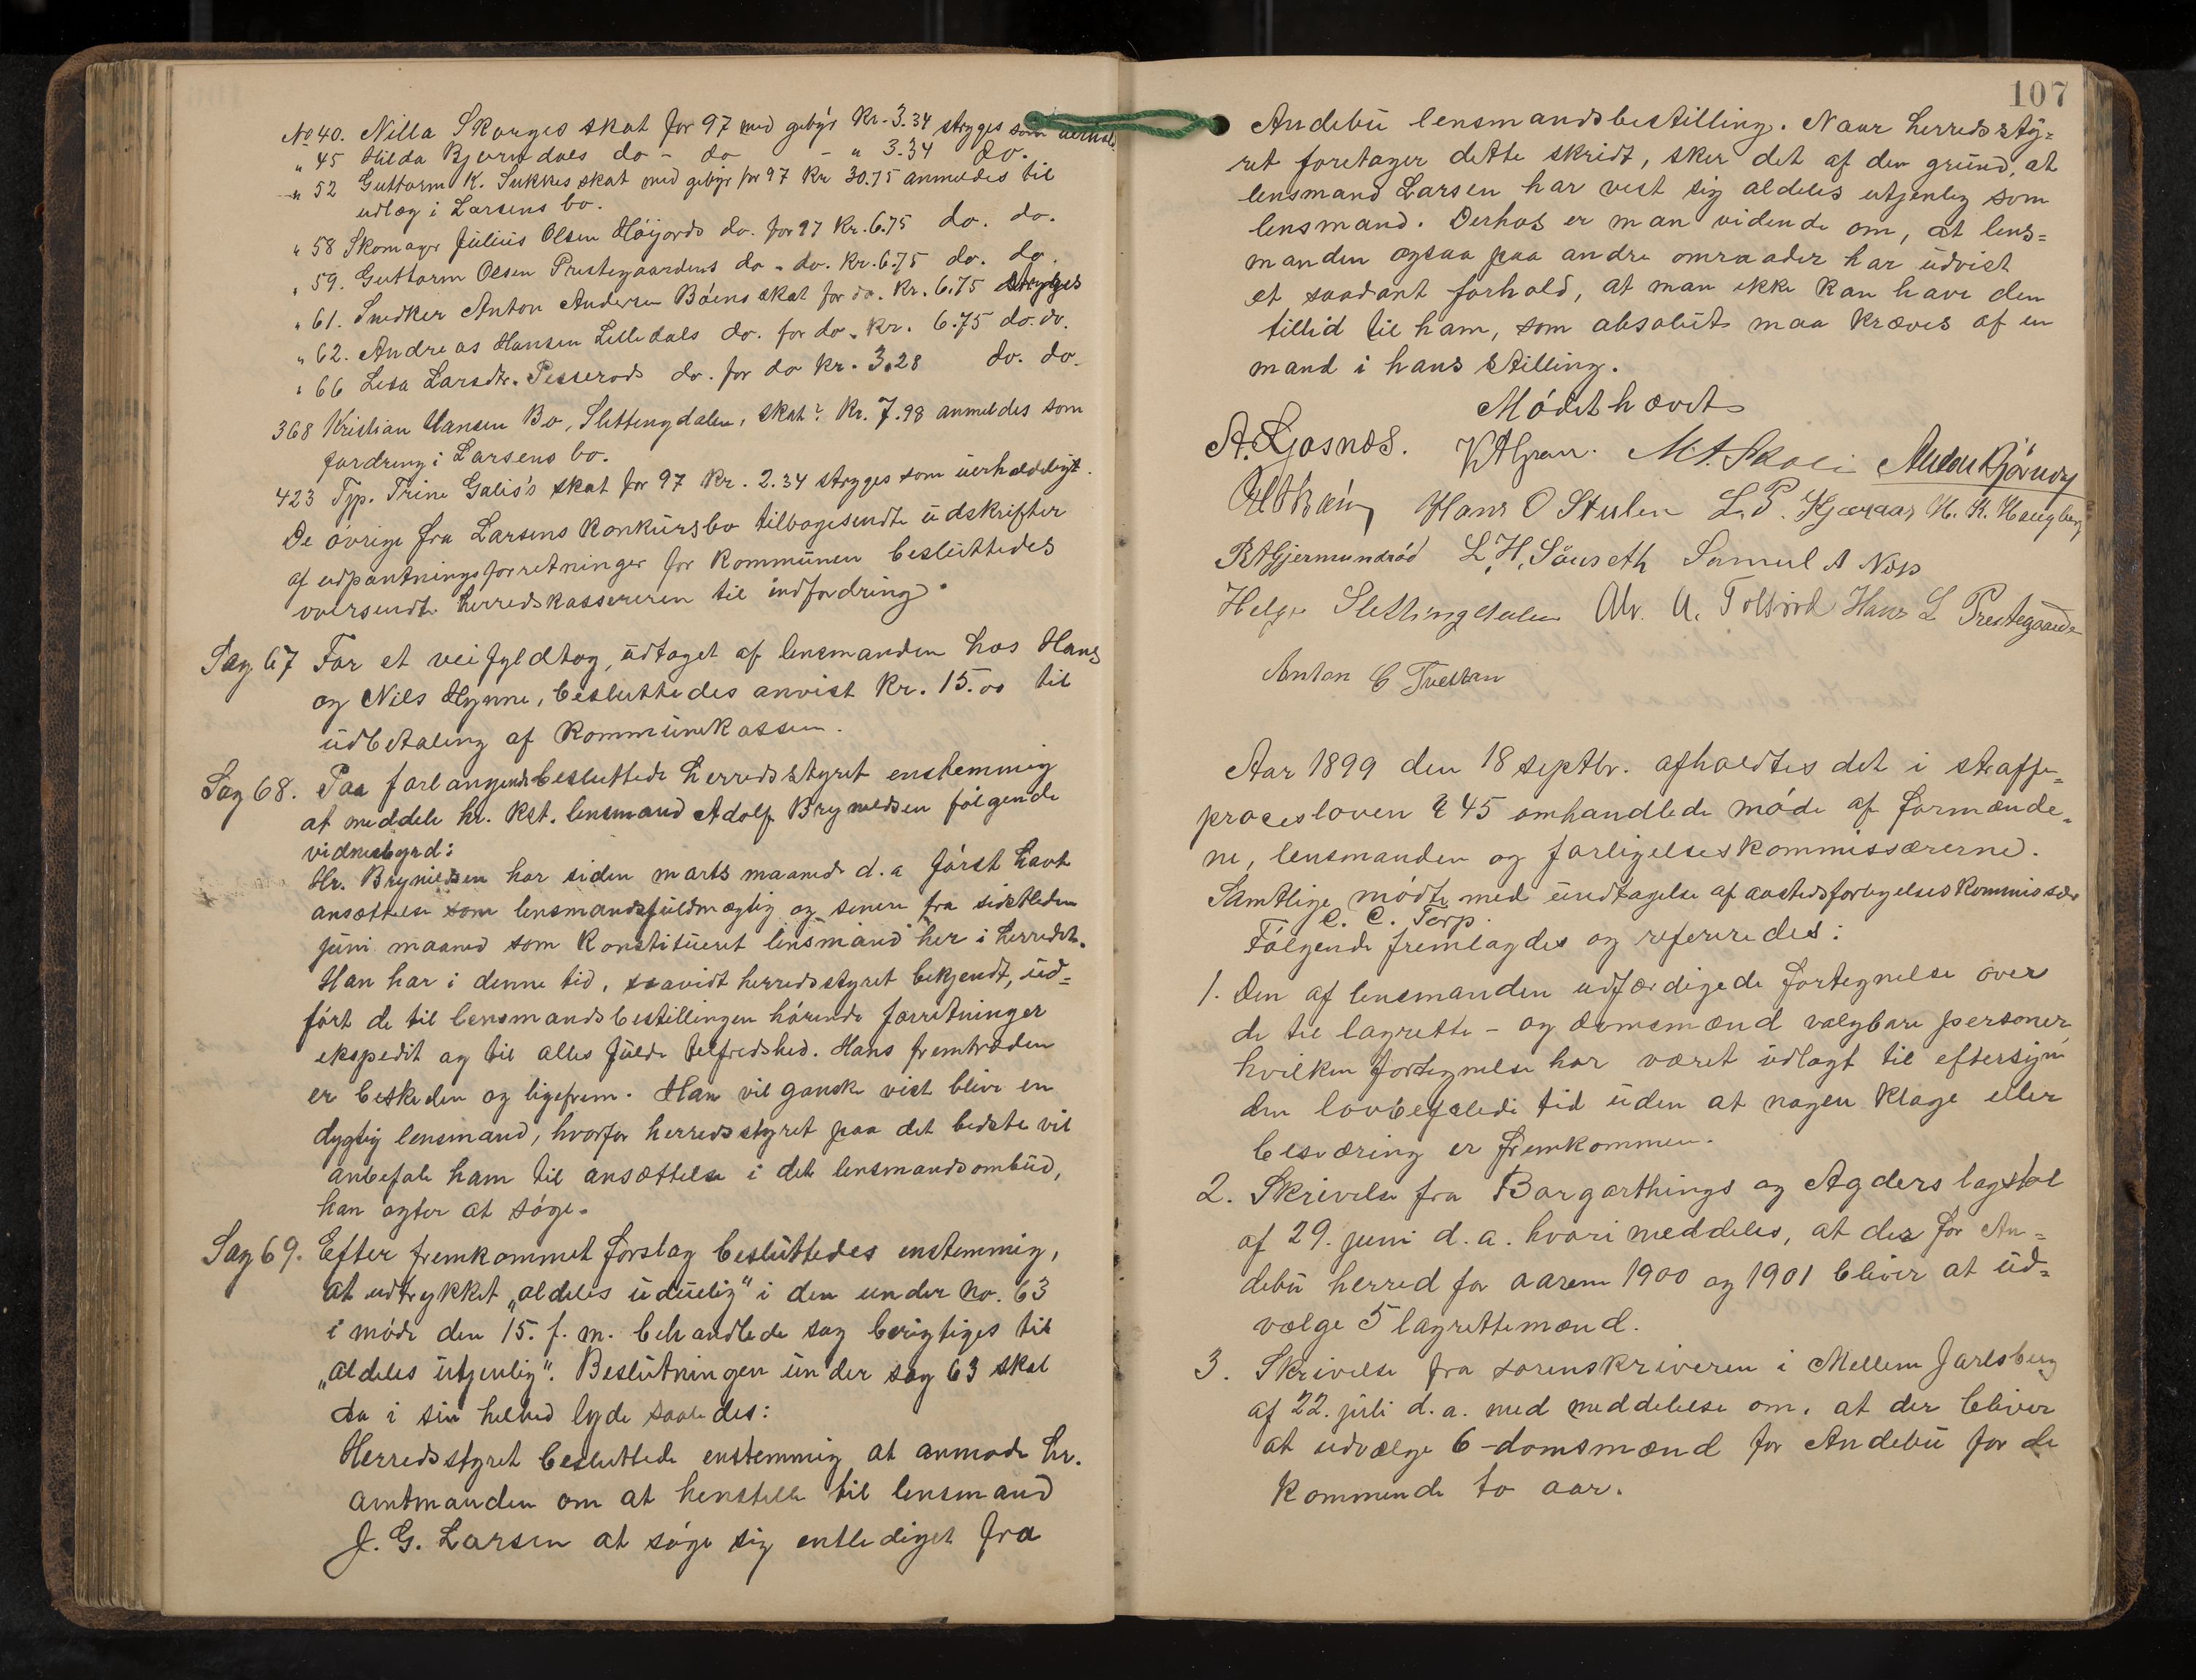 No 40. Nilla Skorges skat for 97 med gebýr Kr. 3.34 stryges som uerhol.
" 45 Hilda Bjørndals do - do - " 3.34 do.
" 52 Guttorm K. Sukkes skat med gebýr for 97 Kr 30.75 anmeldes til
udlæg i Larsens bo.
" 58 Skomager Julius Olsen Høijords do. for 97 Kr. 6.75 do. do.
" 59. Guttorm Olsen Prestegaardens do - do. Kr. 6.75 do. do.
" 61. Snedker Anton Andersen Bøens skat for do. Kr. 6.75 stryges
" 62. Andreas Hansen Lilledals do. for do. Kr. 6.75 do. do.
" 66 Lisa Larsdtr. do. for do Kr. 3.28 do. do.
368 Kristian Hansen Bo, Slettingdalen, skat? Kr. 7.98 anmeldes som
fordring i Larsens bo.
423 Tjp. Trine skat for 97 Kr. 2.34 stryges som uerholdeligt.
De øvrige fra Larsens konkursbo tilbagesendte udskrifter
af udpantningsforretninger for kommunen besluttedes
oversendt herredskassereren til indfordring.
Sag 67 For et veifyldtag, udtaget af lensmanden hos Hans
og Nils Hynne, besluttedes anvist Kr. 15.00 til
udbetaling af kommunekassen.
Sag 68. Paa forlangende besluttede herredsstyret enstemmig
at meddele hr. kst. lensmand Adolf Brynildsen følgende
vidnesbyrd:
Hr. Brynildsen har siden marts maaned d. a først havt
ansættelse som lensmandsfuldmægtig og senere fra sidstleden
juni maaned som konstitueret lensmand her i herredet.
Han har i denne tid, saavidt herredsstyret bekjendt, ud=
ført de til lensmandsbestillingen hørende forretninger
ekspedit og til alles fulde tilfredshed. Hans fremtræden
er beskeden og ligefrem. Han vil ganske vist blive en
dygtig lensmand, hvorfor herredsstyret paa det bedste vil
anbefale ham til ansættelse i det lensmandsombud,
han agter at søge.
Sag 69. Efter fremkommet forslag besluttedes enstemmig,
at udtrykket „aldeles uduelig" i den under No. 63
i møde den 15. f. m. behandlede sag berigtiges til
„aldeles utjenlig". Beslutningen under sag 63 skal
da i sin helhed lyde saaledes:
Herredsstyret besluttede enstemmig at anmode hr.
amtmanden om at henstille til lensmand
J. G. Larsen at søge sig entlediget fra
107
Andebu lensmandsbestilling. Naar herredssty=
ret foretager dette skridt, sker det af den grund, at
lensmand Larsen har vist sig aldeles utjenlig som
lensmand. Derhos er man vidende om, at lens=
manden ogsaa paa andre omraader har udvist
et saadant forhold, at man ikke kan have den
tillid til ham, som absolut maa kræves af en
mand i hans stilling.
Mødet hævet
A. Gjosnæs. M. A. Skoli
Hans O Stulen L. P. Kjæraas H. K. Haugberg
R A Gjermundrød L. H. Sønseth Samuel A Næs
Helge Slettingdalen Alv. A. Toltsrød Hans L Prestegaarden
Anton C Tveitan
Aar 1899 den 18 septbr. afholdtes det i straffe=
procesloven § 45 omhandlede møde af formænde=
ne, lensmanden og forligelseskommissærerne.
Samtlige mødte med undtagelse af aastedsforligelseskommissær
C. C. Torp.
Følgende fremlagdes og refereredes:
1. Den af lensmanden udfærdigede fortegnelse over
de til lagrette- og domsmænd valgbare personer,
hvilken fortegnelse har været udlagt til eftersyn
den lovbefalede tid uden at nogen klage eller
besværing er fremkommen.
2. Skrivelse fra Borgarthings og Agders lagstol
af 29. juni d. a. hvori meddeles, at der for An=
debu herred for aarene 1900 og 1901 bliver at ud=
vælge 5 lagrettemænd.
3. Skrivelse fra sorenskriveren i Mellem Jarlsberg
af 22. juli d. a. med meddelelse om, at der bliver
at udvælge 6 domsmænd for Andebu for de
kommende to aar.